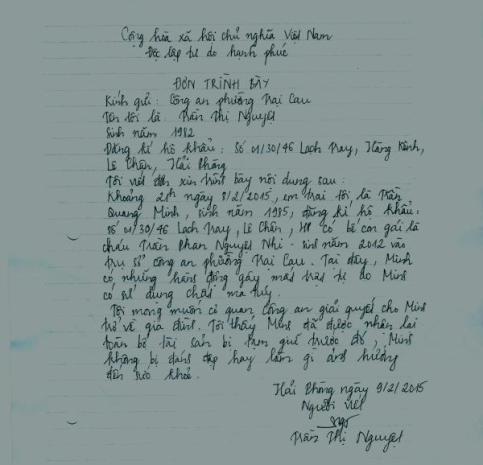 Cộng hòa xã hội chủ nghĩa Việt Nam
Độc lập tự do hạnh phúc
ĐƠN TRÌNH BÀY
Kính gửi : Công an phường Trại Cau
Tên tôi là Trần Thị Nguyệt
Sinh năm 1982
Đăng kí hộ khẩu : Số 01/30/46 Lạch Tray, Hàng Kênh,
Lê Chân, Hải Phòng
Tôi viết đơn xin trình bày nội dung sau :
Khoảng 21h ngày 8/2/2015, em trai tôi là Trần
Quang Minh, sinh năm 1985, đăng kí hộ khẩu:
số 01/30/46 Lạch Tray, Lê Chân, HP có bế con gái là
cháu Trần Phan Nguyệt Nhi - sinh năm 2012 vào
trụ sở công an phường Trại Cau. Tại đây, Minh
có những hành động gây mất trật tự do Minh
có sử dụng chất ma túy.
Tôi mong muốn cơ quan công an giải quyết cho Minh
trở về gia đình. Tôi thấy Minh đã được nhận lại
toàn bộ tài sản bị tạm giữ trước đó, Minh
không bị đánh đập hay làm gì ảnh hưởng
đến sức khỏe.
Hải Phòng ngày 9/2/2015
Người viết
Trần Thị Nguyệt